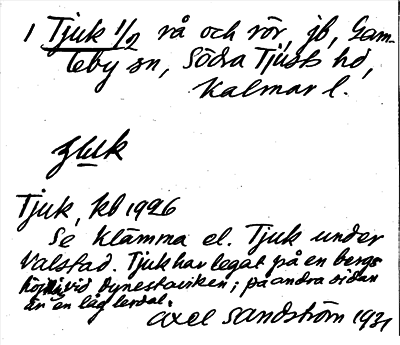 1 Tjuk 1/2 rå och rör, jb, Gam-
leby sn, Södra Tjusts hd,
Kalmar l.
Tjuk, kb 1926
Se Klämma el. Tjuk under
Valstad. Tjuk har legat på en bergs
höjd vid Dynestaviken; på andra sidan
är en låg lerdal.
Axel Sandström 1931